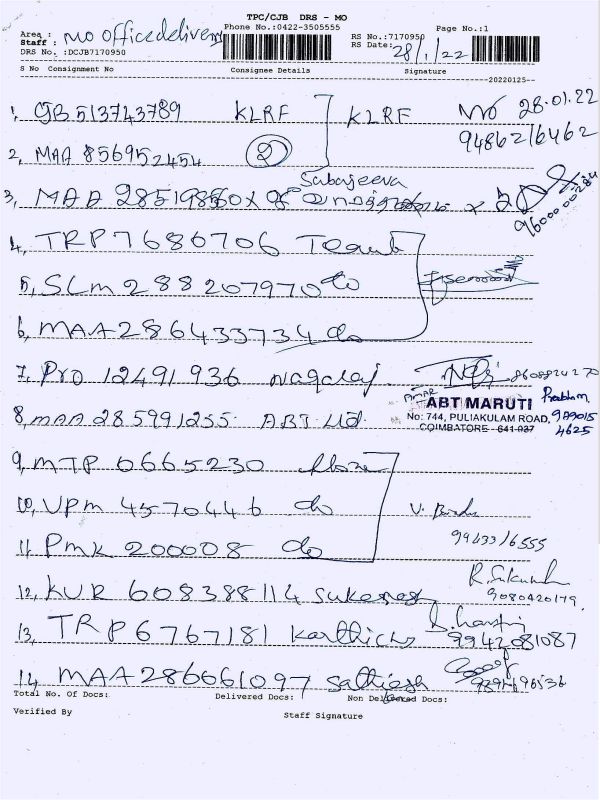 TPC/CJB DRS - MO
Phone No.:0422-3505555
Page No.:1
Area :
Staff : MO office delivery
RS No.:7170950
RS Date: 28/1/22
DRS No. :DCJB7170950
S No Consignment No Consignee Details Signature
20220125
1, CJB 513743789 KLRF KLRF 28.01.22
9486216462
2, MAA 856952454 2
Sabarjeeva
3, MAA
4, TRP 7686706
5, SLM 288207970 do
6, MAA 286433734 do
7, PRO 12491936 Nagaraj 8608824270
8, MAA 285991255 ABT Ltd
AMAR ABT MARUTI Prabhu
No: 744, PULIAKULAM ROAD, 989015
COIMBATORE - 641 037 4625
9, MTP 0665230
10, VPM 4570446 do
11, PMK 200008 do
9943316555
12, KUR 608388114
9080420179
13, TRP 6767181 Karthick 9942081087
14, MAA 286661097 Sathish
Total No. Of Docs: Delivered Docs: Non Delivered Docs:
Verified By Staff Signature